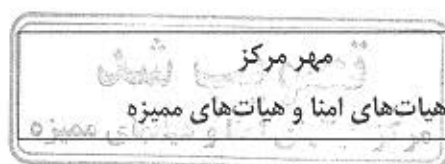 مهر مرکز
هیات‌های امنا و هیات‌های ممیزه